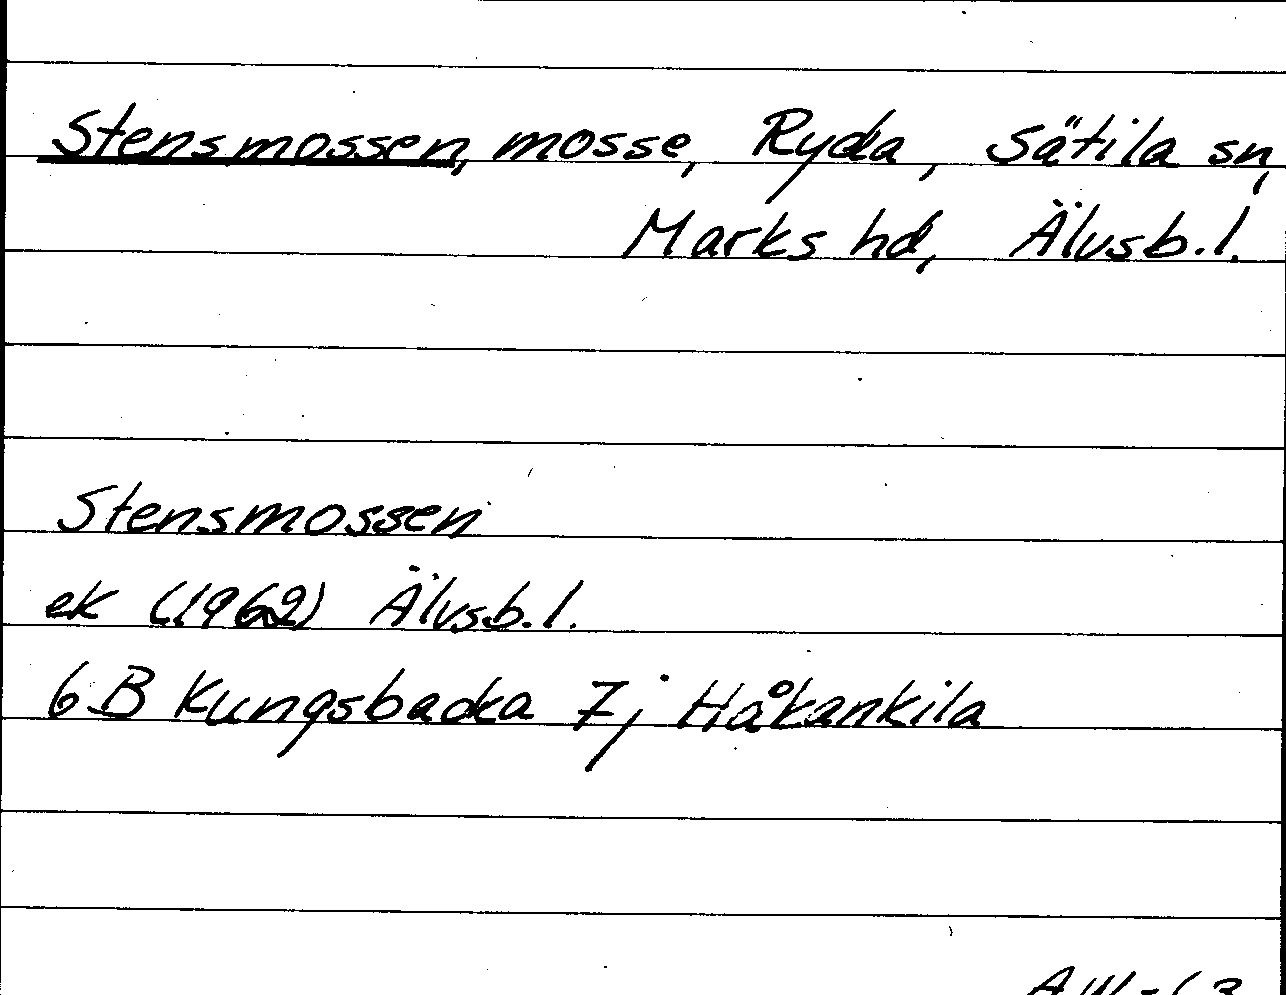 Stensmossen, mosse, Ryda, Sätila sn,
Marks hd, Älvsb.l.
Stensmossen
ek (1962) Älvsb.l.
6 B Kungsbacka 7j Håkankila